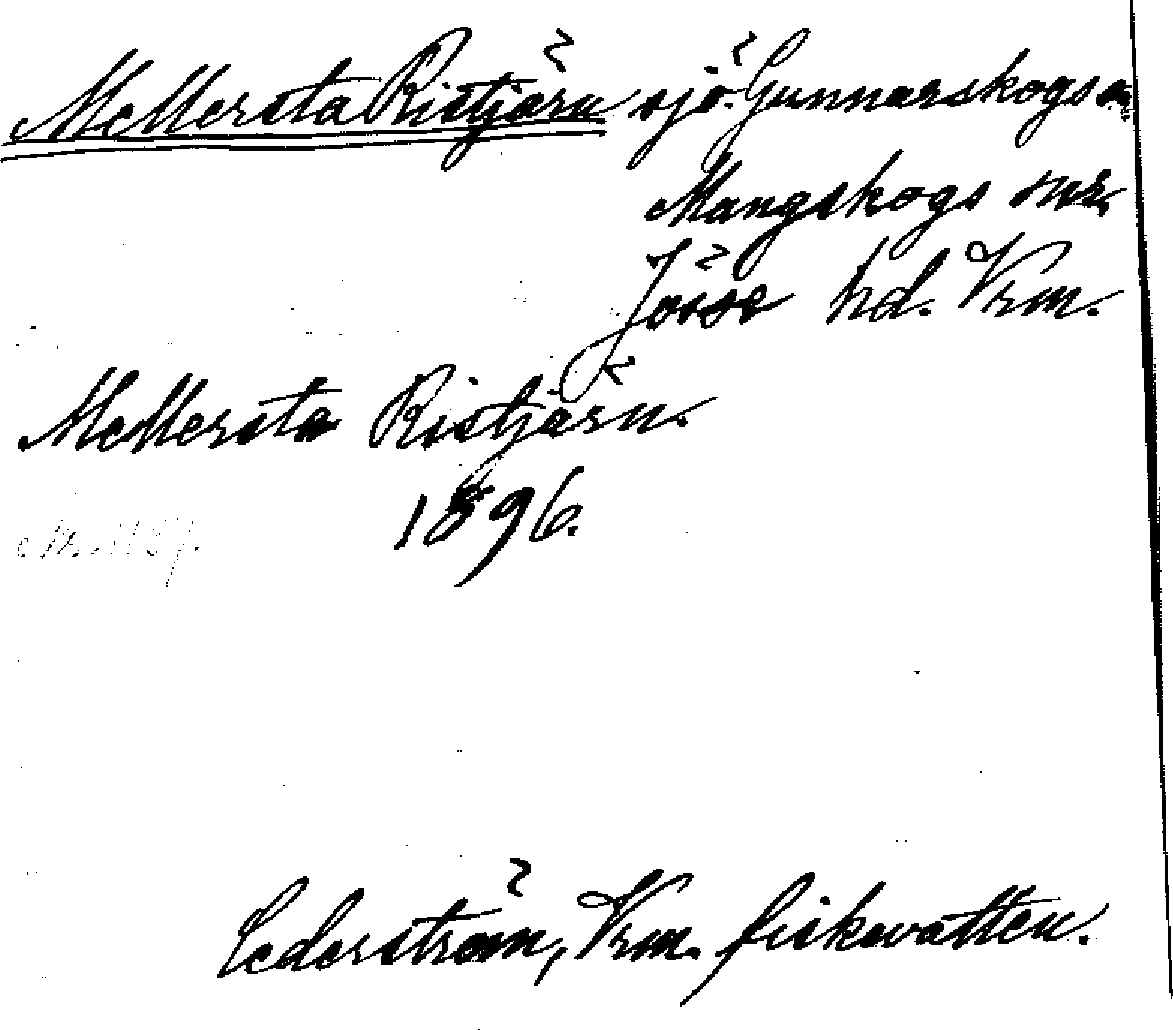 Mellersta Ristjärn sjö. Gunnarskogs o.
Mangskogs snr.
Jösse hd. Vrm.
Mellersta Ristjärn.
1896.
Cederström, Vrm. fiskevatten.